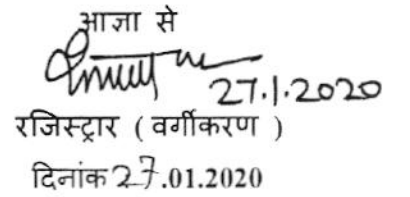 आज्ञा से
27.1.2020
रजिस्ट्रार ( वर्गीकरण )
दिनांक 27.01.2020